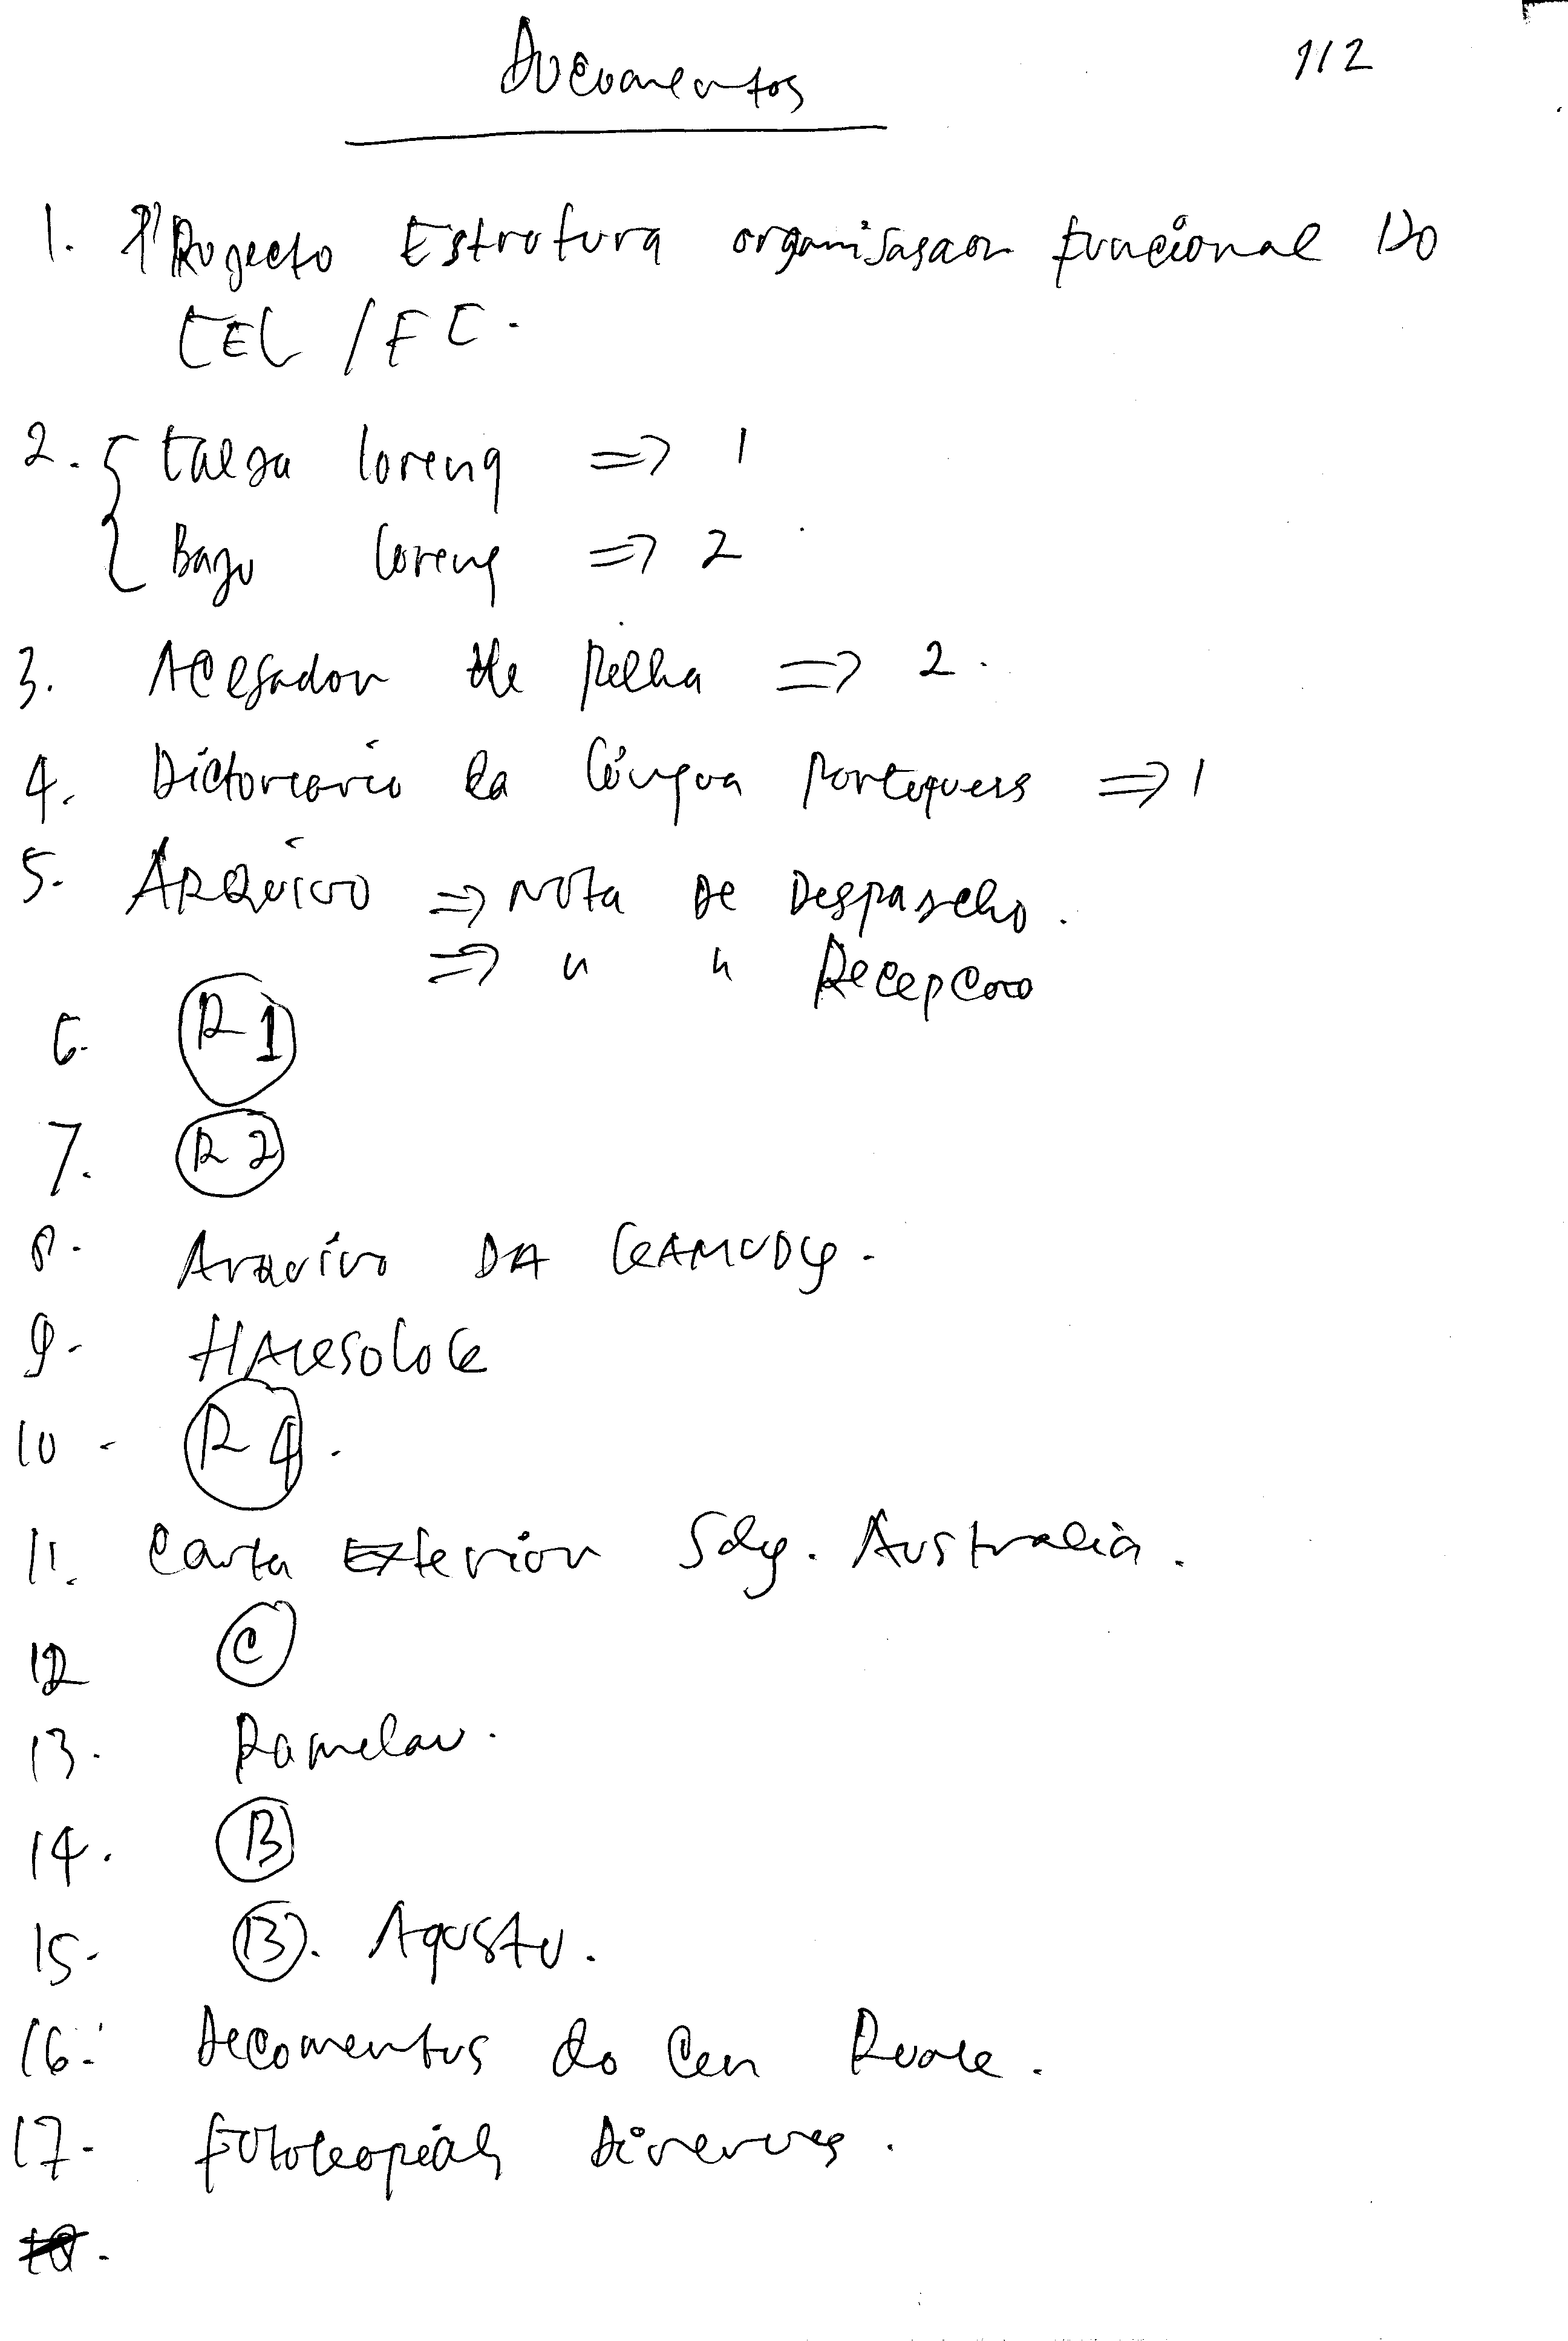 Documentos 1/2
1. Projecto Estrutura organisasaon funcional Do
CEL / FC.
2. Calsa loreng => 1
Bazu loreng => 2
3. de pilha => 2.
4. da Língua portugues => 1
5. ARQUIVO => NOTA DE Despascho.
=> " " Recepcao
6. R1
7. R2
8. Arquivo DA
9.
10. R4.
11. Carta Exterior Sdy. Australia.
12 C
13. Ramelau.
14. B
15. B. Agustu.
16. Documentos do Cen
17. fotocopias Diverves.
18.